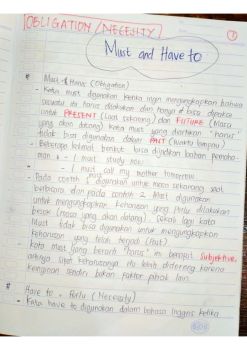 OBLIGATION / NECESSITY
Must and Have to
* Must & Harus (Obligation)
- Kata must digunakan ketika ingin mengungkapkan bahwa
sesuatu itu harus dilakukan dan hanya bisa dipakai
untuk PRESENT (Saat sekarang) dan FUTURE (Masa
yang akan datang). Kata must yang diartikan "harus"
tidak bisa digunakan dalam PAST (Waktu lampau)
- Beberapa kalimat berikut bisa dijadikan bahan pemaha-
man : - I must study now
- I must call my brother tomorrow
- Pada contoh 1 must digunakan untuk masa sekarang saat
berbicara dan pada contoh 2 Must digunakan
untuk mengungkapkan keharusan yang perlu dilakukan
besok (masa yang akan datang). Sekali lagi kata
Must tidak bisa digunakan untuk mengungkapkan
keharusan yang telah terjadi (Past)
- Kata must yang berarti "harus" ini bersifat Subjektive,
artinya sifat keharusannya itu lebih didorong karena
keinginan sendiri bukan faktor pihak lain.
* Have to . Perlu (Necessity)
- Kata have to digunakan dalam bahasa Inggris ketika